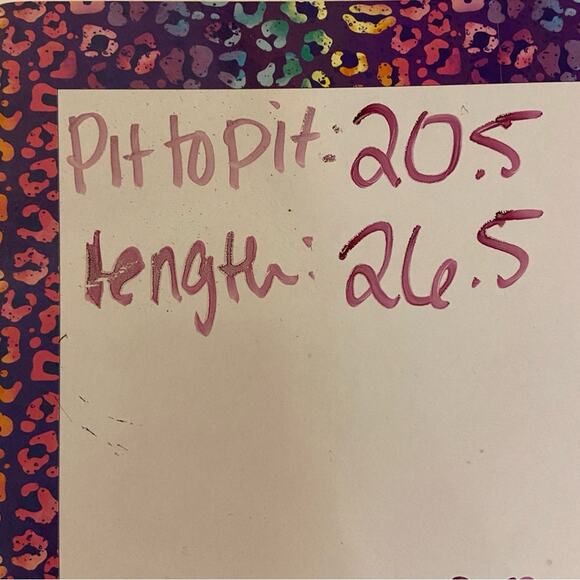 Pit to pit: 20.5
Length: 26.5